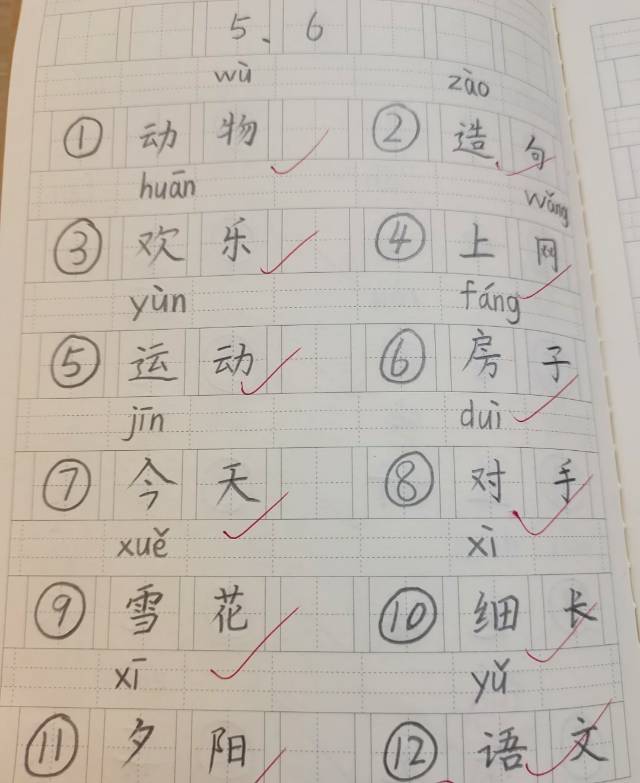 5、6
wù zào
① 动物 ② 造句
huān wǎng
③ 欢乐 ④ 上网
yùn fáng
⑤ 运动 ⑥ 房子
jīn duì
⑦ 今天 ⑧ 对手
xuě xì
⑨ 雪花 ⑩ 细长
xī yǔ
⑪ 夕阳 ⑫ 语文